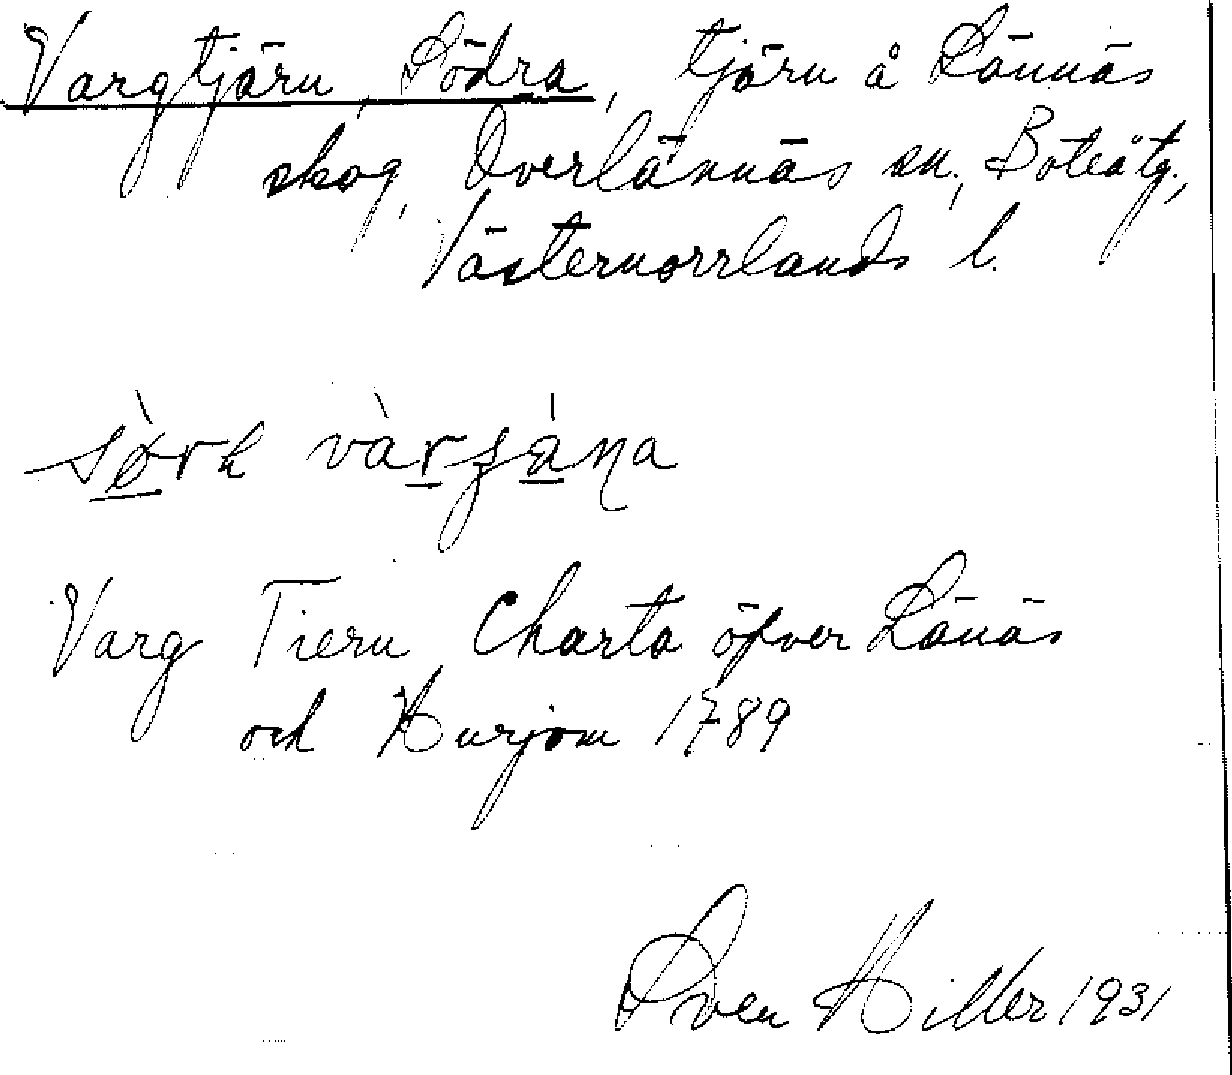 Vargtjärn, Södra, tjärn å Lännäs
skog, Överlännäs sn., Boteå tg.,
Västernorrlands l.
Varg Tiern, Charta öfver Länäs
och Hurjom 1789
Sven Hiller 1931